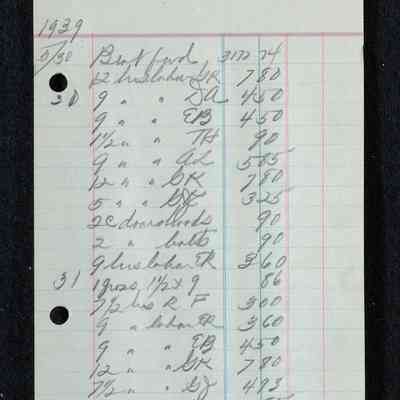 1939
5/30 Brot fwd 3172 74
12 hrs labor GK 7 80
30 9 " " DA 4 50
9 " " EB 4 50
1 1/2 " " TH 90
9 " " AL 5 85
12 " " GK 7 80
5 " " GJ 3 25
90
2 " bolts 90
9 hrs labor ER 3 60
31 1 gross 1 1/2 x 9 86
7 1/2 hrs R F 3 00
9 " labor ER 3 60
9 " " EB 4 50
12 " " GK 7 80
7 1/2 " " GJ 4 93